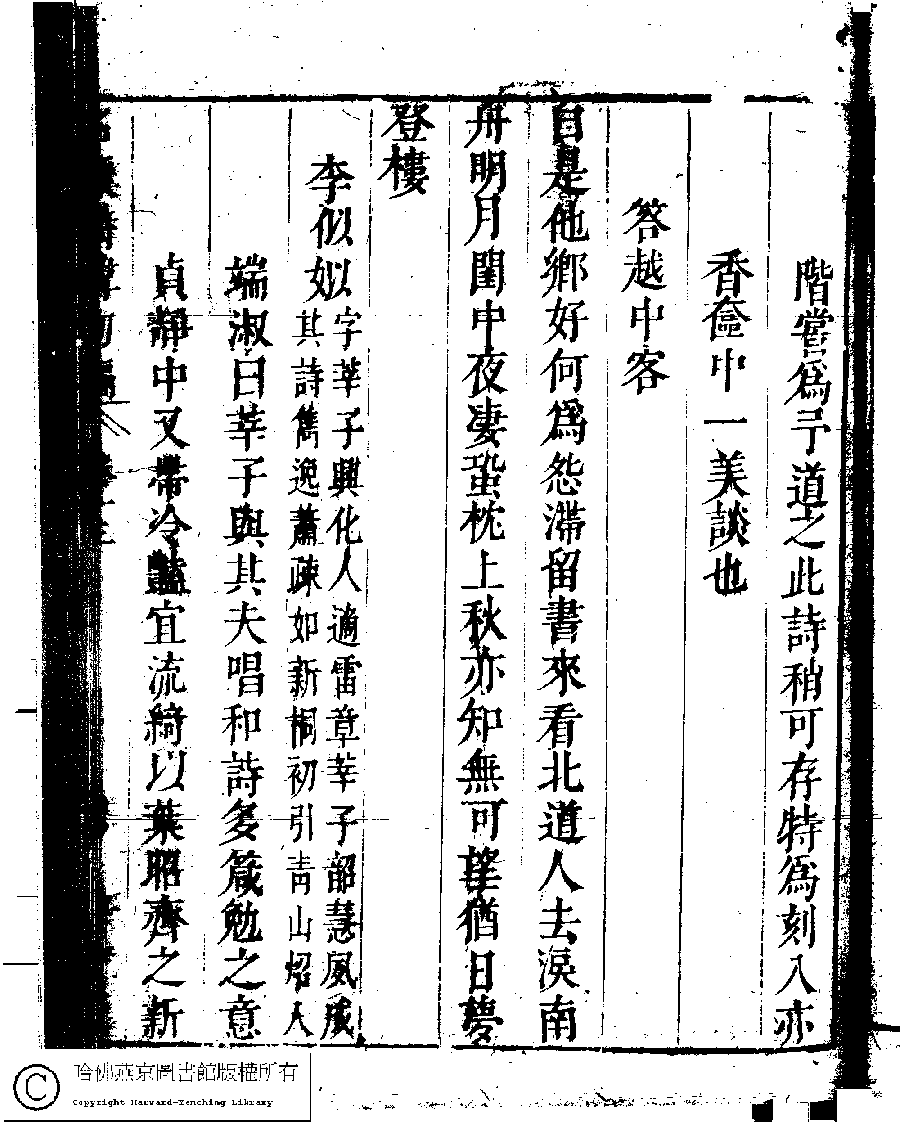 階嘗爲予道之此詩稍可存特爲刻入亦
香奩中一美談也
答越中客
自是他鄉好何爲怨滯留書來看北道人去淚南
舟明月閨中夜凄蛩枕上秋亦知無可望猶日夢
登樓
李似姒
字莘子興化人適雷章莘子韶慧夙成
其詩雋逸蕭疎如新桐初引青山炤人
端淑曰莘子與其夫唱和詩多箴勉之意
貞靜中又帶冷豔宜流綺以葉昭齊之新
名媛詩緯初編
哈佛燕京圖書館版權所有
Copyright Harvard-Yenching Library